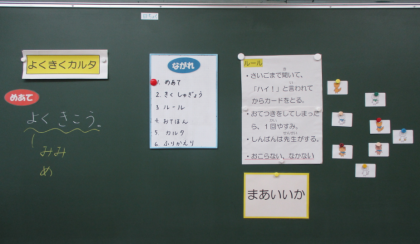 よくきくカルタ
めあて
よくきこう。
みみ
め
ながれ
1. めあて
2. きくしゅぎょう
3. ルール
4. おてほん
5. カルタ
6. ふりかえり
ルール
・さいごまで聞いて、
「ハイ!」と言われて
からカードをとる。
・おてつきをしてしまった
ら、1回やすみ。
・しんぱんは先生がする。
・おこらない、なかない
まあいいか